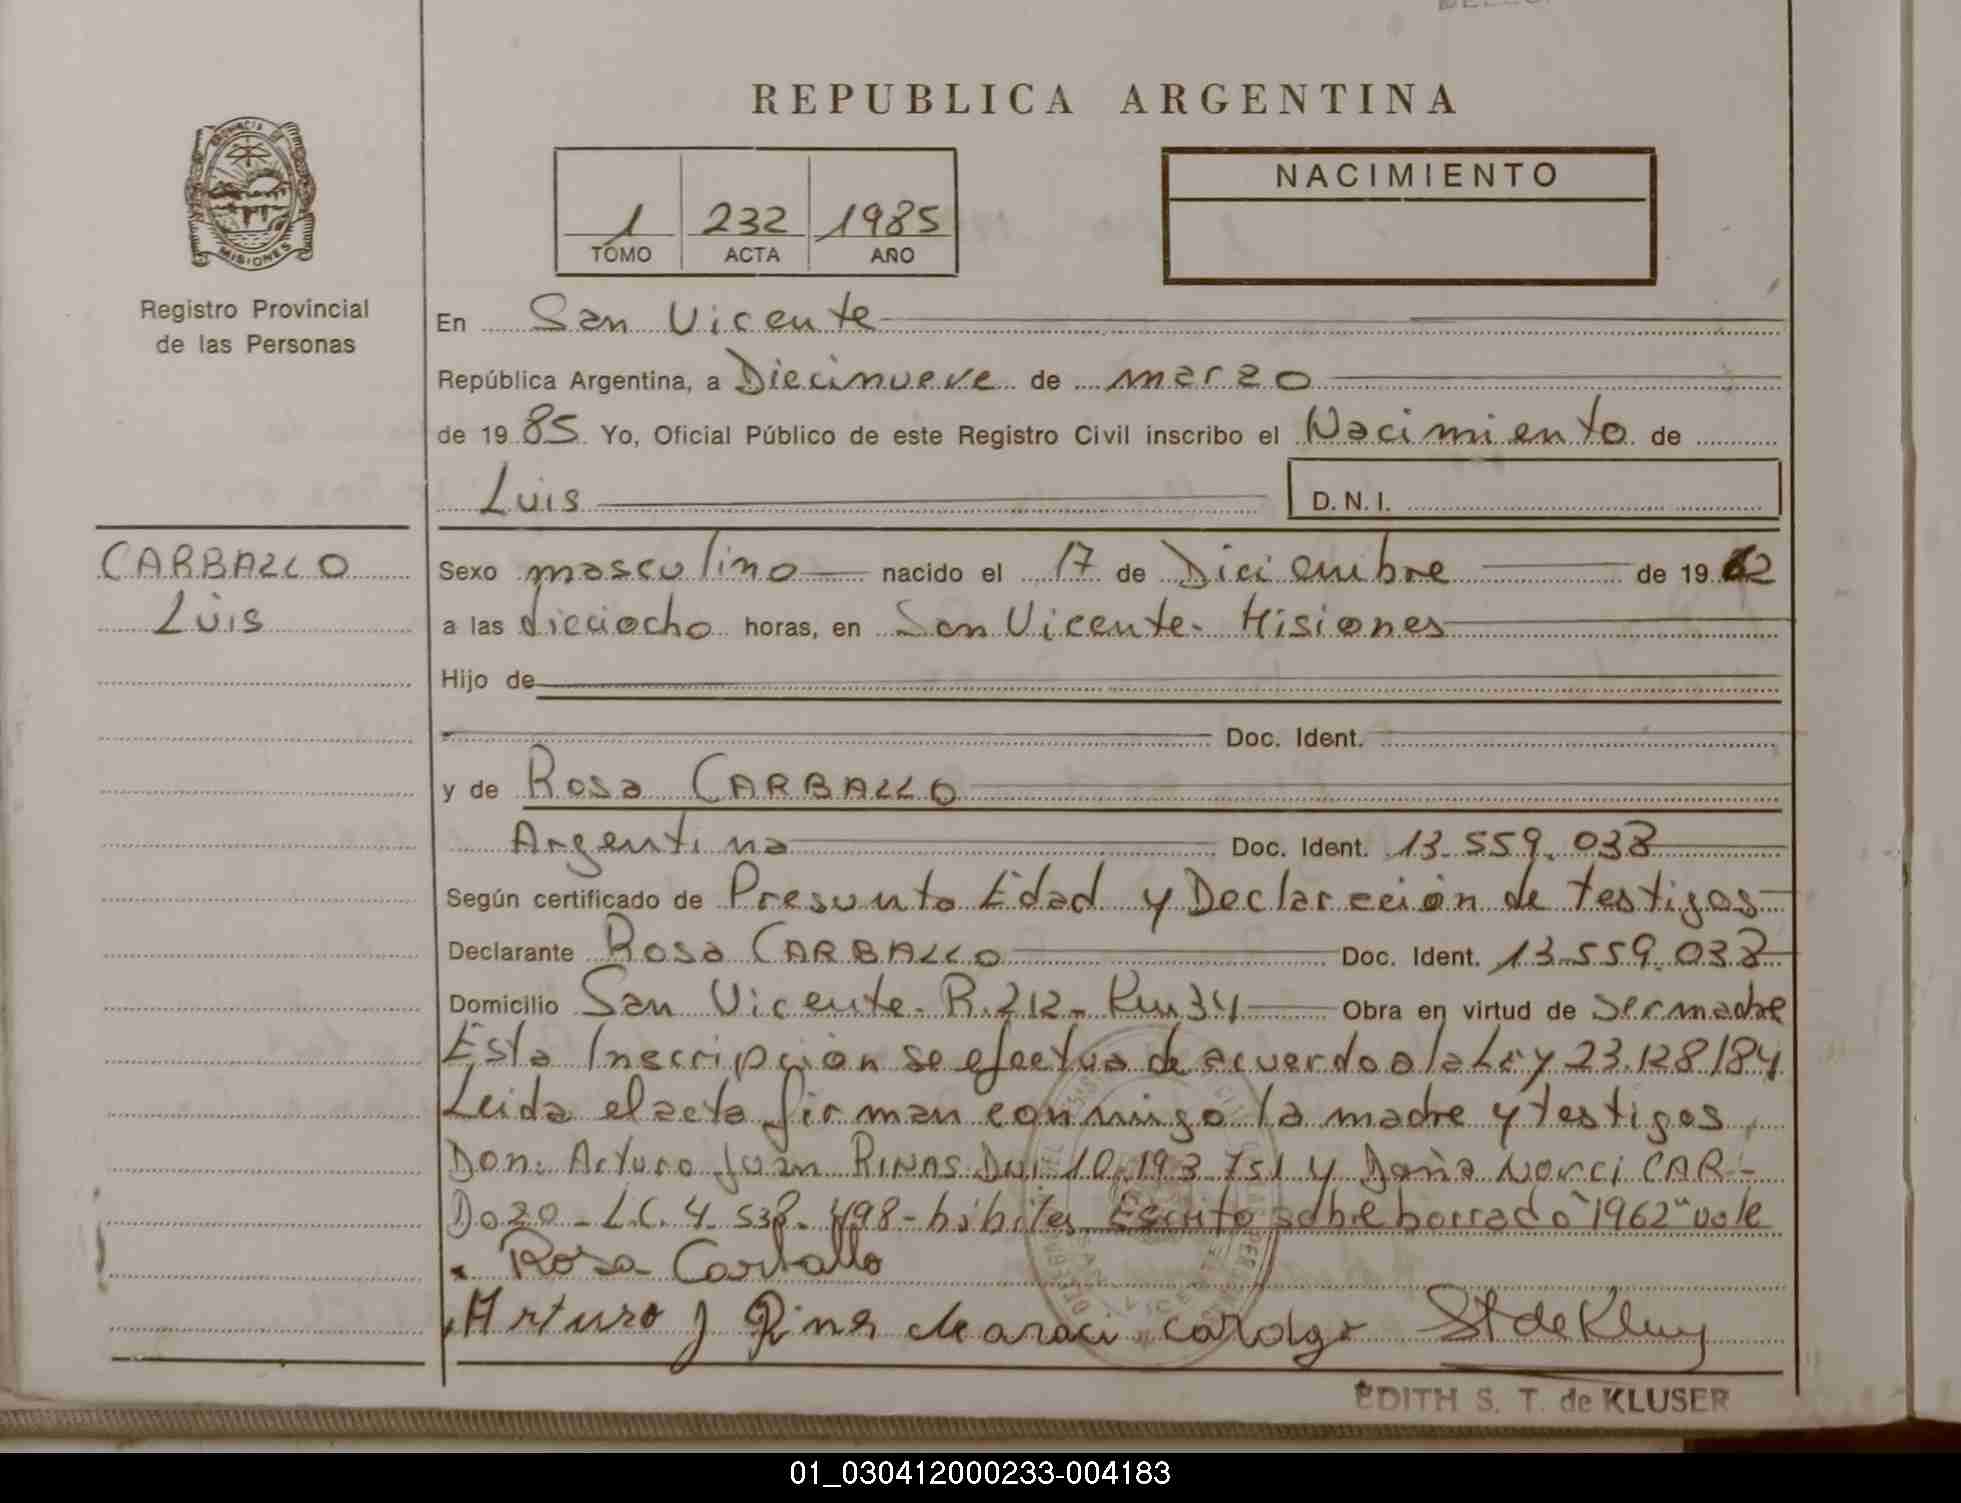 REPUBLICA ARGENTINA
PROVINCIA DE
MISIONES
Registro Provincial
de las Personas
1 232 1985
TOMO ACTA AÑO
NACIMIENTO
En San Vicente
República Argentina, a Diecinueve de marzo
de 19 85 Yo, Oficial Público de este Registro Civil inscribo el Nacimiento de
Luis D. N. I.
CARBALLO
Luis
Sexo masculino nacido el 17 de Diciembre de 19 62
a las dieciocho horas, en San Vicente- Misiones
Hijo de
Doc. Ident.
y de Rosa CARBALLO
Argentina Doc. Ident. 13.559.038
Según certificado de Presunta Edad y Declaración de testigos
Declarante Rosa CARBALLO Doc. Ident. 13.559.038
Domicilio San Vicente- R.212- Km 34 Obra en virtud de ser madre
Esta Inscripción se efectua de acuerdo a la Ley 23.128/84
Leida el acta firman conmigo la madre y testigos
Don: Arturo Juan RINAS Dni 10.193.751 y Doña CAR-
DOZO - L.C. 4.538.498 - hábiles Escrito sobre borrado "1962" vale
Rosa Carballo
Arturo J Rinas Cardozo St de Kluser
EDITH S. T. de KLUSER
01_030412000233-004183